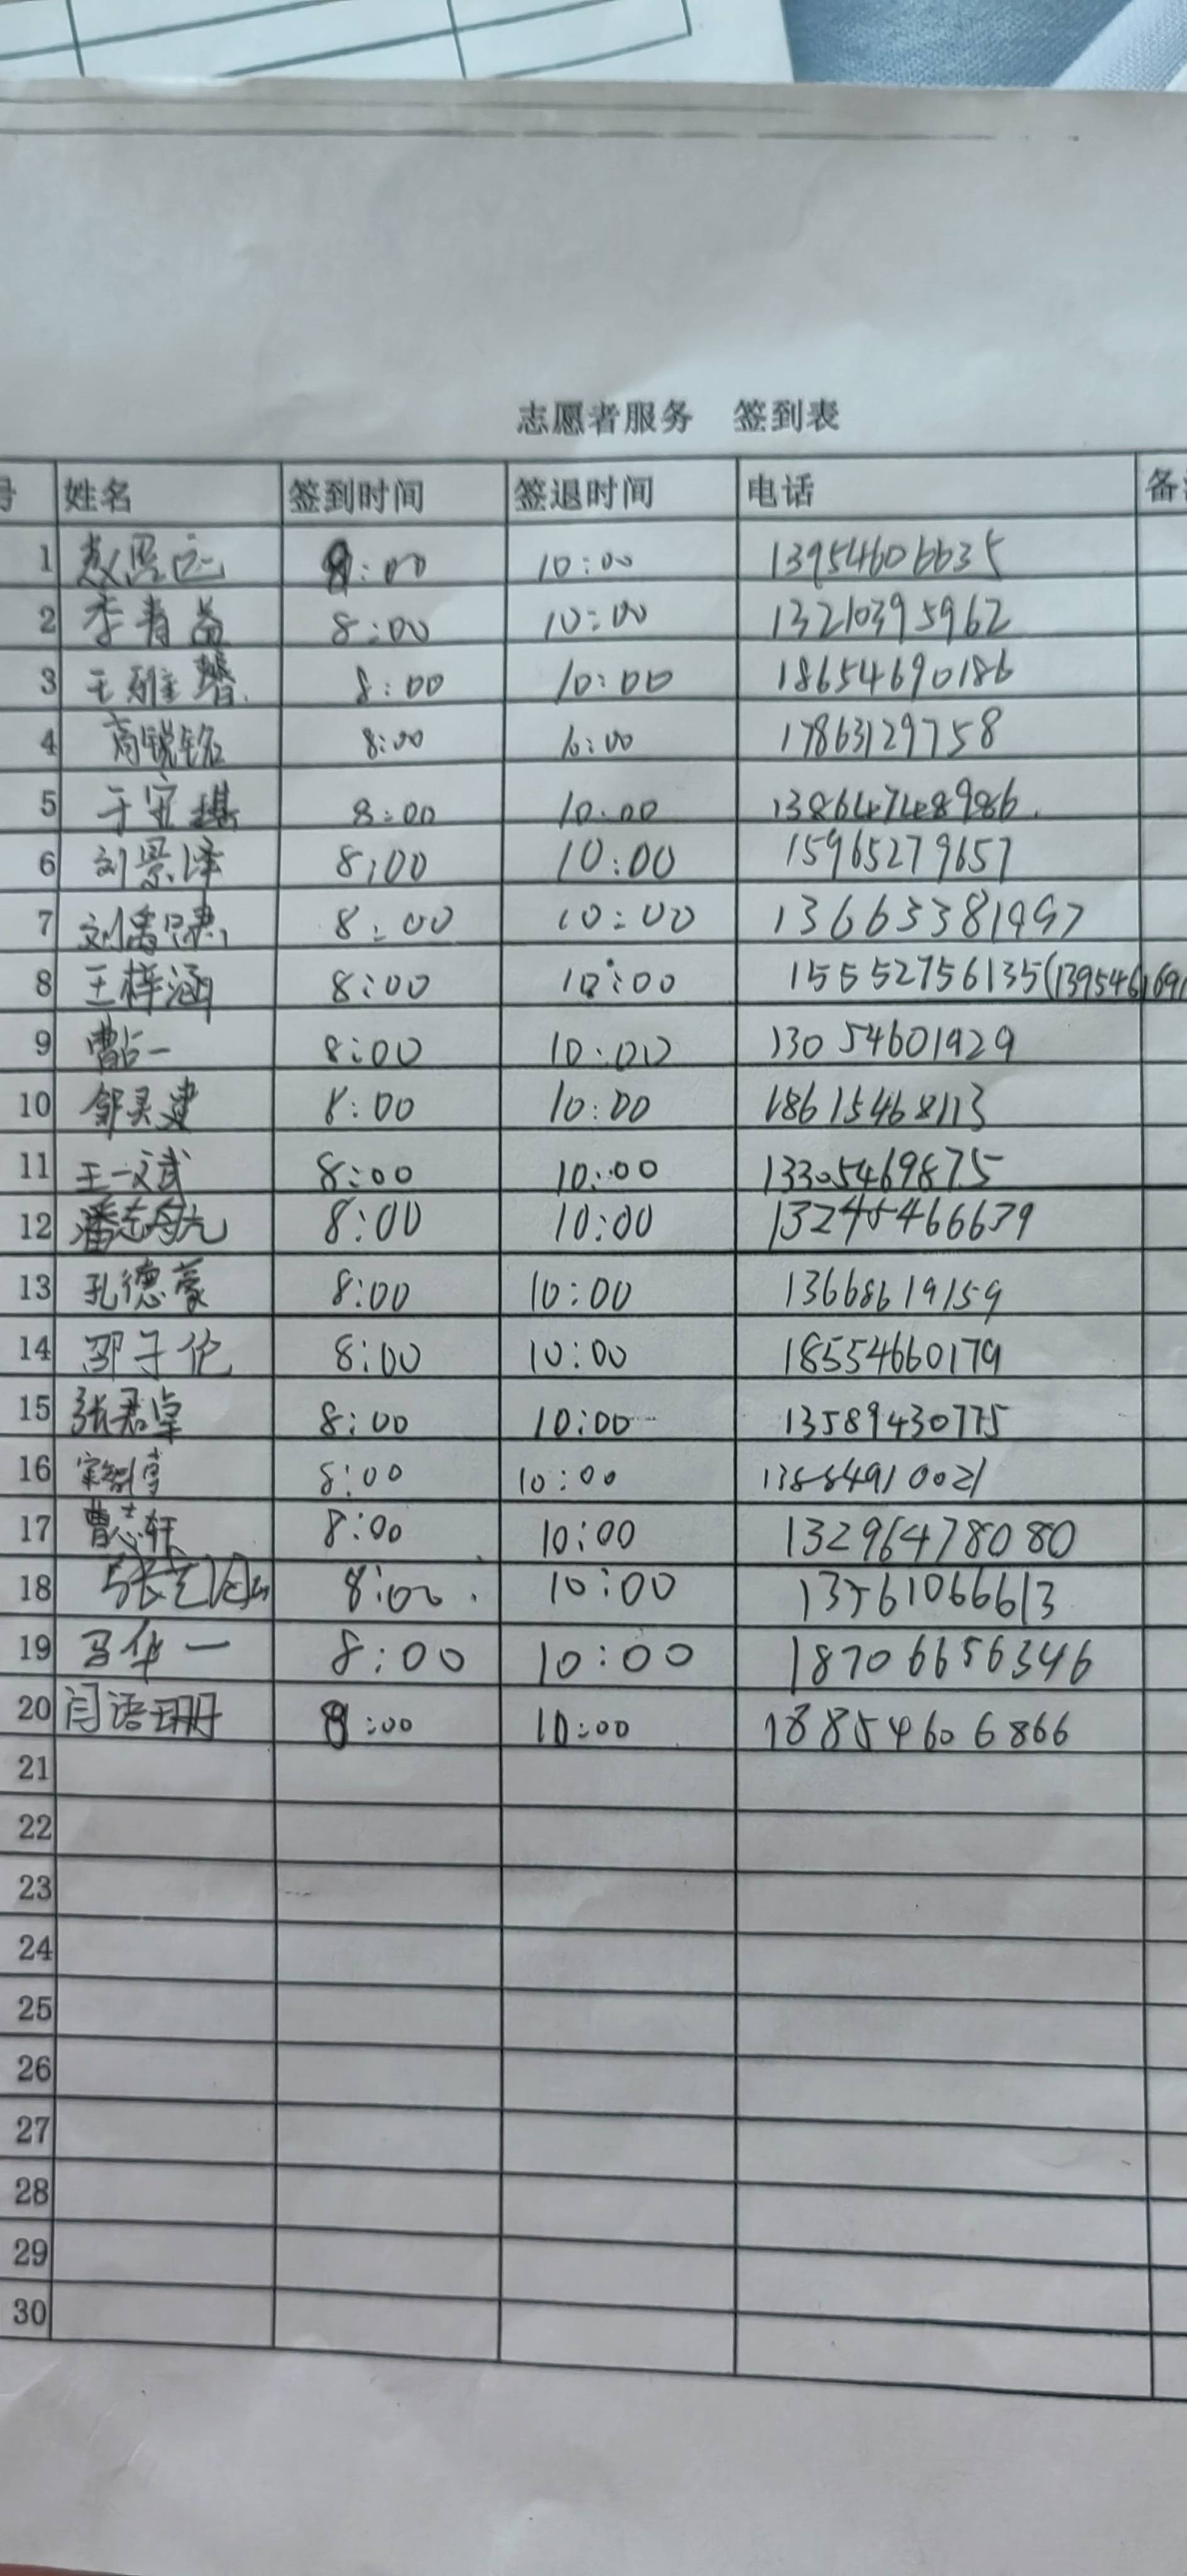 志愿者服务 签到表
号 姓名 签到时间 签退时间 电话 备
1 8:00 10:00 13954606635
2 李青益 8:00 10:00 13210395962
3 王雅馨 8:00 10:00 18654690186
4 商锐铭 8:00 10:00 17863129758
5 于宜祺 8:00 10:00 13864748986
6 刘景泽 8:00 10:00 15965279657
7 8:00 10:00 13663381997
8 王梓涵 8:00 10:00 15552756135(1395461691
9 曹占一 8:00 10:00 13054601929
10 邹昊建 8:00 10:00 18615468113
11 王一斌 8:00 10:00 13305469875
12 8:00 10:00
13 孔德豪 8:00 10:00 13668619159
14 邵子伦 8:00 10:00 18554660179
15 张君卓 8:00 10:00 13589430775
16 8:00 10:00 13884910021
17 曹志轩 8:00 10:00 13296478080
18 8:00 10:00 13561066613
19 马华一 8:00 10:00 18706656346
20 闫语珊 8:00 10:00 18854606866
21
22
23
24
25
26
27
28
29
30